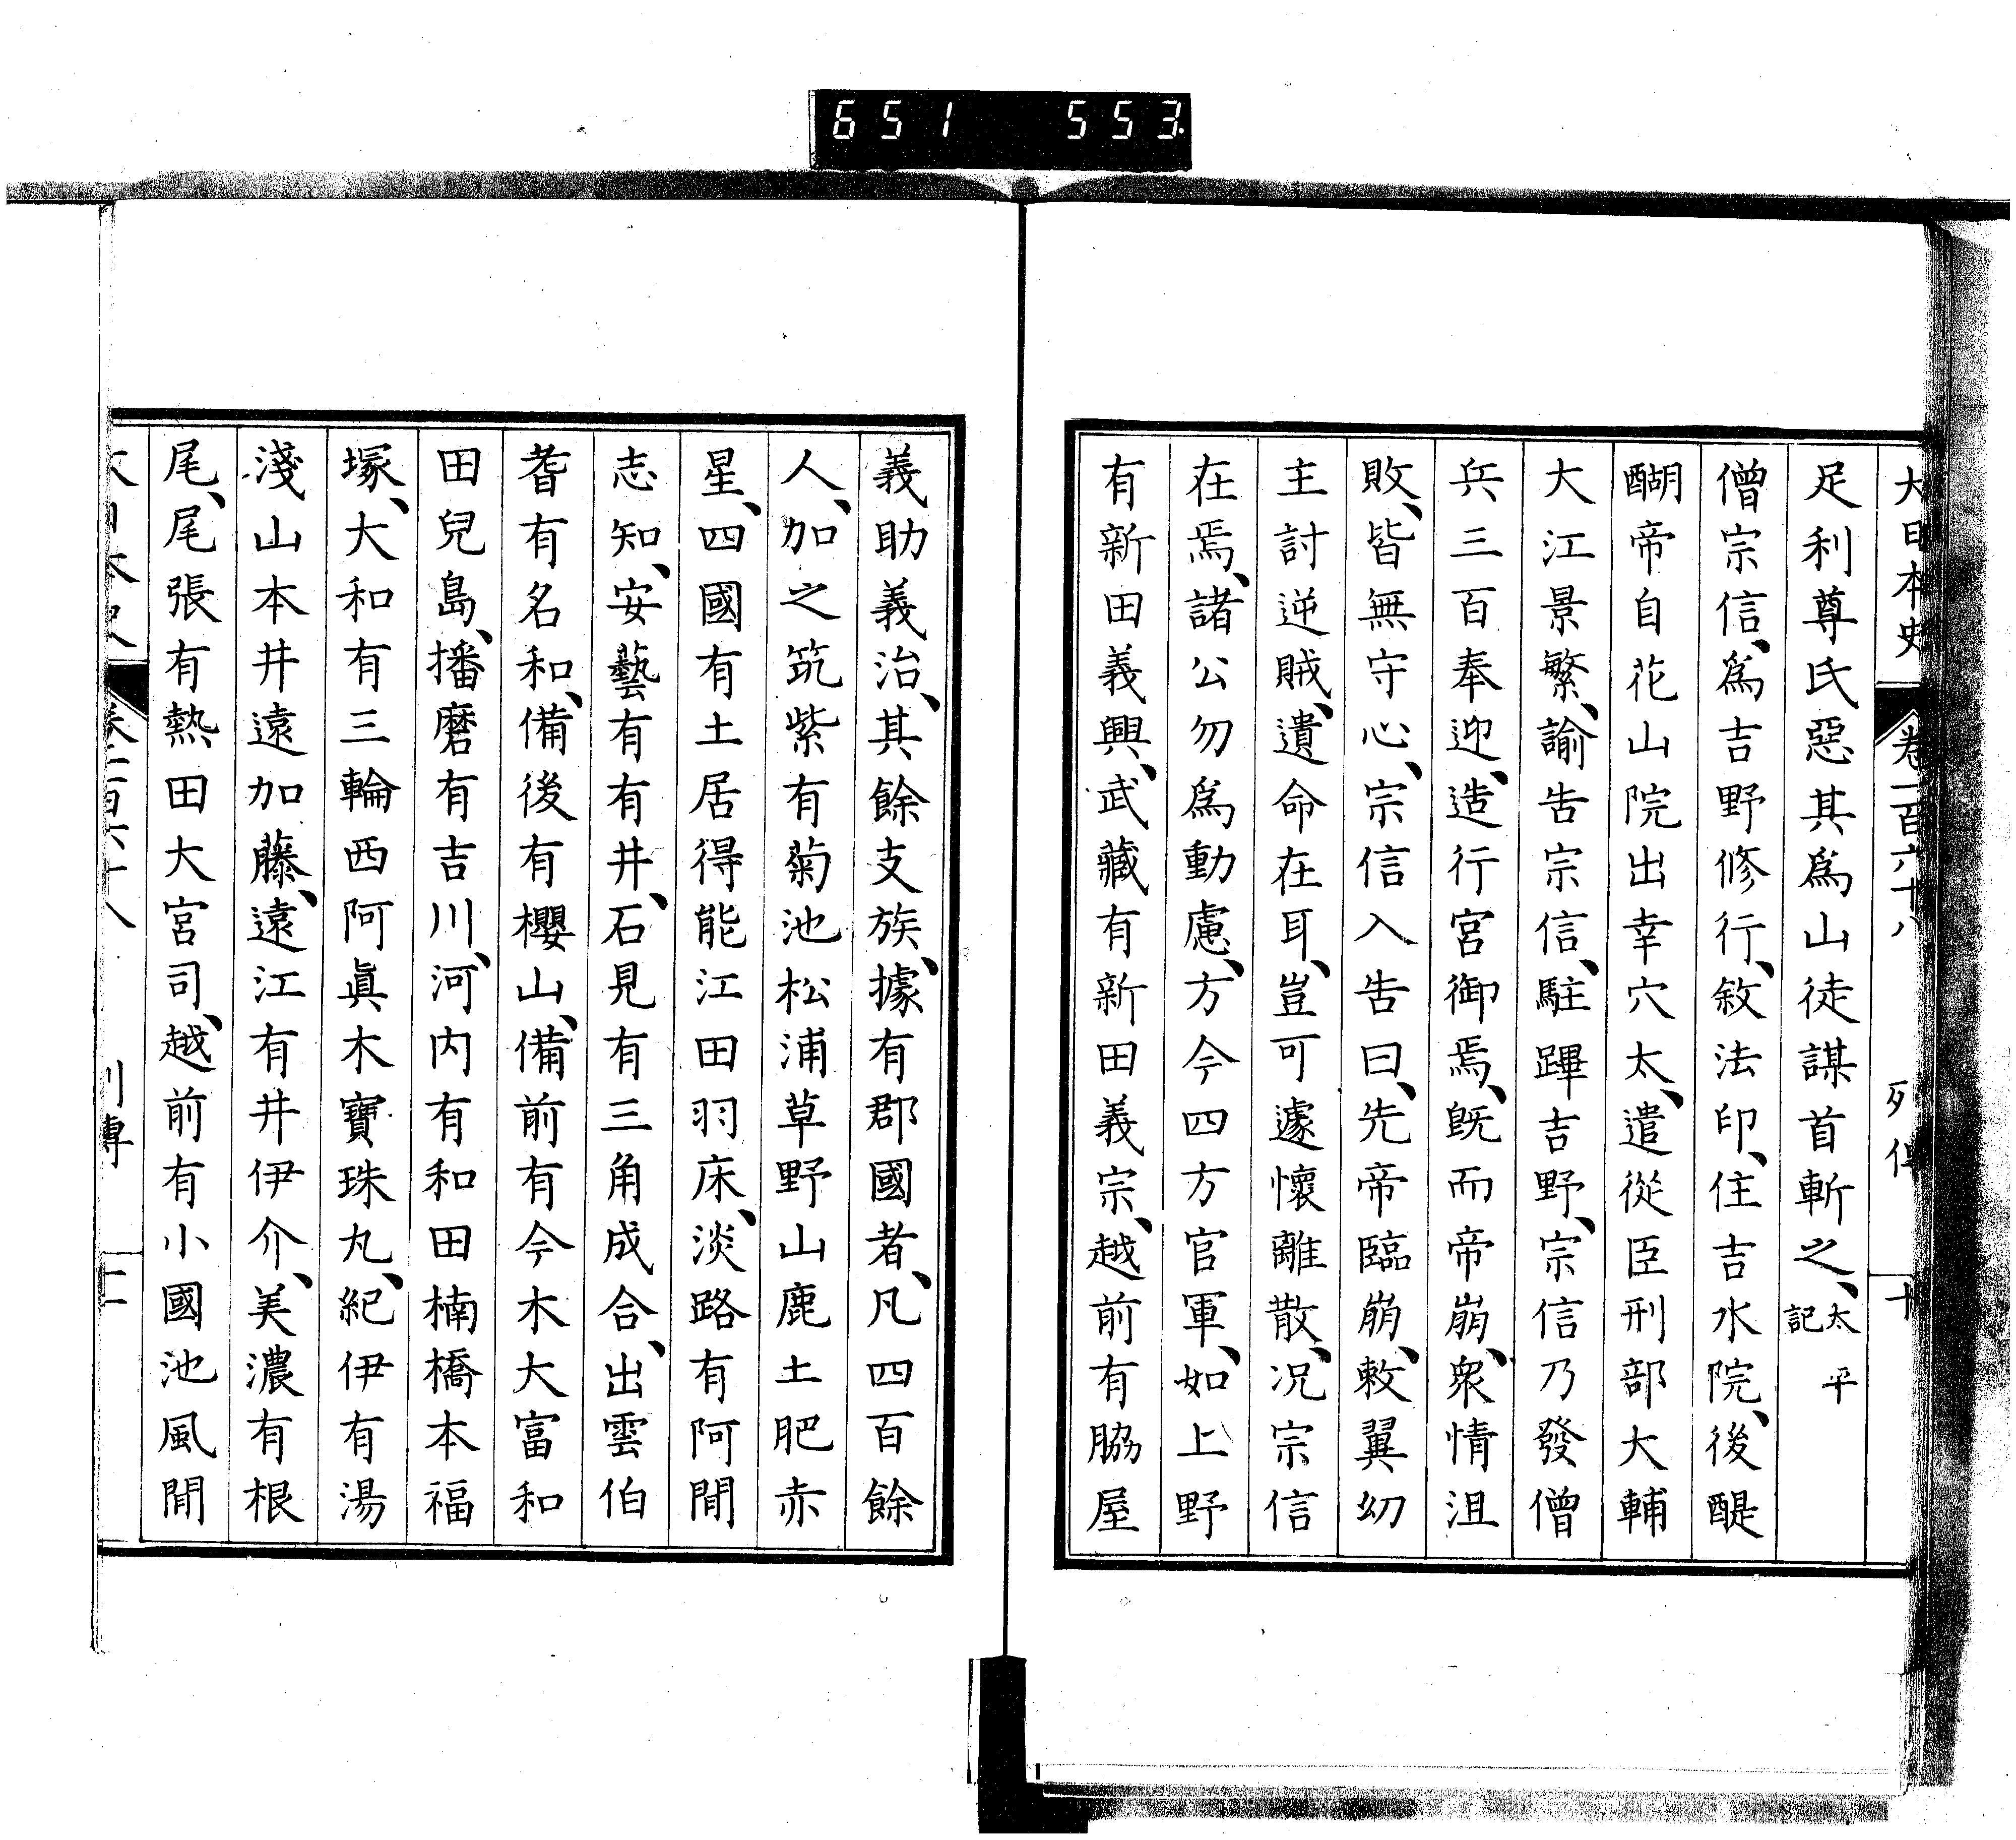 651 553
大日本史 卷一百六十八 列傳 十
足利尊氏惡其爲山徒謀首斬之、太平記
僧宗信、爲吉野修行、敘法印、住吉水院、後醍
醐帝自花山院出幸穴太、遣從臣刑部大輔
大江景繁、諭告宗信、駐蹕吉野、宗信乃發僧
兵三百奉迎、造行宮御焉、既而帝崩、衆情沮
敗、皆無守心、宗信入告曰、先帝臨崩、敕翼幼
主討逆賊、遺命在耳、豈可遽懷離散、况宗信
在焉、諸公勿爲動慮、方今四方官軍、如上野
有新田義興、武藏有新田義宗、越前有脇屋
義助義治、其餘支族、據有郡國者、凡四百餘
人、加之筑紫有菊池松浦草野山鹿土肥赤
星、四國有土居得能江田羽床、淡路有阿閒
志知、安藝有有井、石見有三角成合、出雲伯
耆有名和、備後有櫻山、備前有今木大富和
田兒島、播磨有吉川、河内有和田楠橋本福
塚、大和有三輪西阿眞木寶珠丸、紀伊有湯
淺山本井遠加藤、遠江有井伊介、美濃有根
尾、尾張有熱田大宮司、越前有小國池風閒